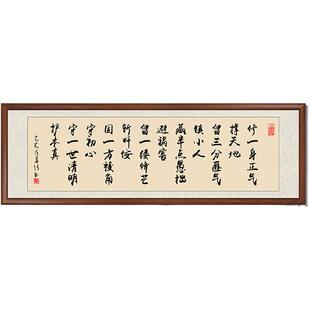 修一身正气
撑天地
留三分匪气
镇小人
藏半点愚拙
避祸害
留一缕锋芒
斩
固一方棱角
守初心
守一世清明
护本真
乙巳年